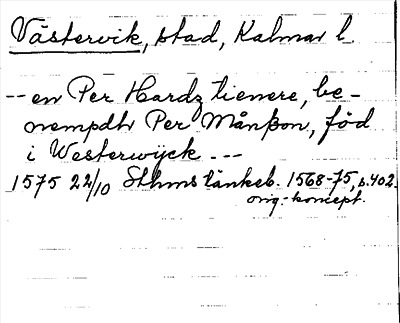 Västervik, stad, Kalmar l.
-- en Per Hardz tienere, be-
nempdh Per Månsson, föd
i Westerwijck. ---
1575 22/10 Sthms tänkeb. 1568-75, s. 402.
orig.-koncept.